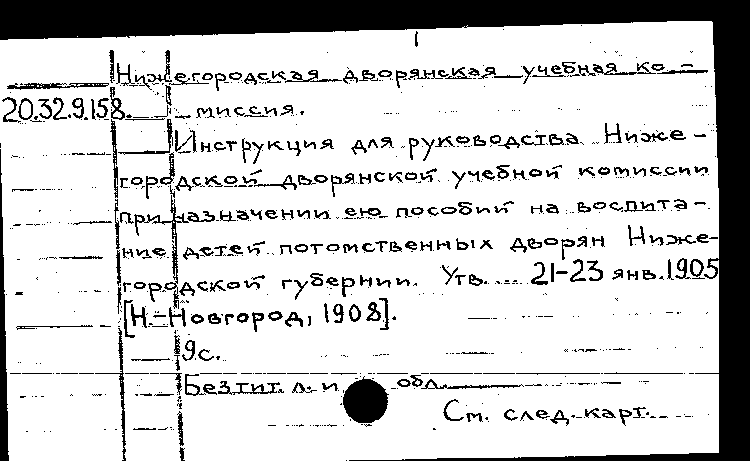 Нижегородская дворянская учебная ко-
20.32.9.158. миссия.
Инструкция для руководства Ниже-
городской дворянской учебной комиссии
при назначении ею пособий на воспита-
ние детей потомственных дворян Ниже-
городской губернии. Утв. ... 21-23 янв. 1905
[Н.-Новгород, 1908].
9с.
Без тит. л. и обл.
См. след. карт.